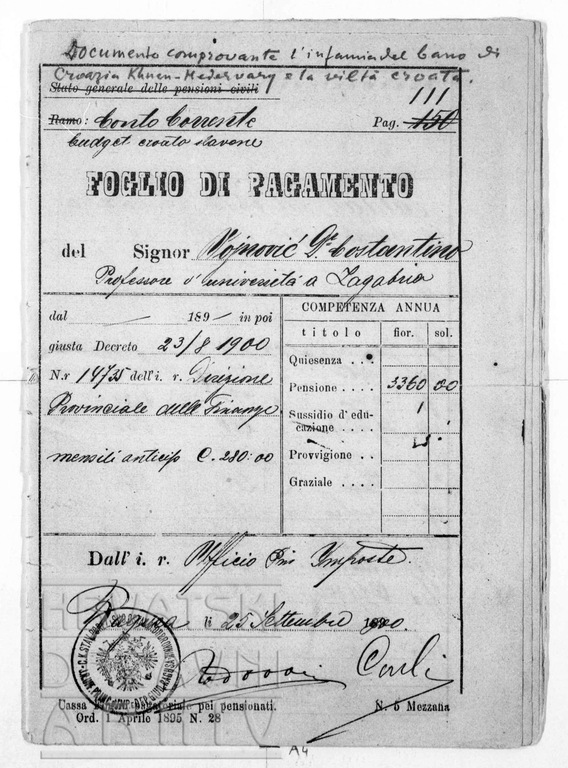 Documento comprovante l'infamia del Bano di
Croazia Khuen-Hedervary e la viltà croata.
Stato generale delle pensioni civili
111
Ramo: Conto Corrente Pag. 150
budget croato slavone
FOGLIO DI PAGAMENTO
del Signor Vojnović Dr Costantino
Professore d'università a Zagabria
dal 189 in poi
giusta Decreto 23/8 1900
N.r 14735 dell'i. r. Direzione
Provinciale delle Finanze
mensili anticip C. 280:00
COMPETENZA ANNUA
titolo fior. sol.
Quiesenza . . .
Pensione . . . . 3360 00
Sussidio d'edu-
cazione . . . .
Provvigione . .
Graziale . . . .
Dall' i. r. Ufficio Pni Imposte.
Ragusa li 25 Settembre 1900.
HRVATSKI
DRŽAVNI
ARHIV
Cassa pei pensionati.
Ord. 1 Aprile 1895 N. 28
N. 6 Mezzana
A4